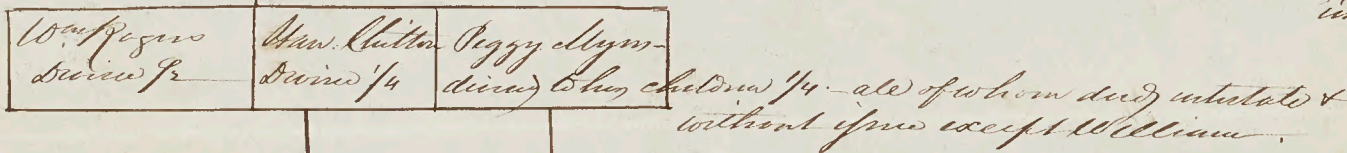 Wm Rogers
Devisee 1/2
Han. Chilton
Devisee 1/4
Peggy Myers
devised to her children 1/4 - all of whom died intestate &
without issue except William.